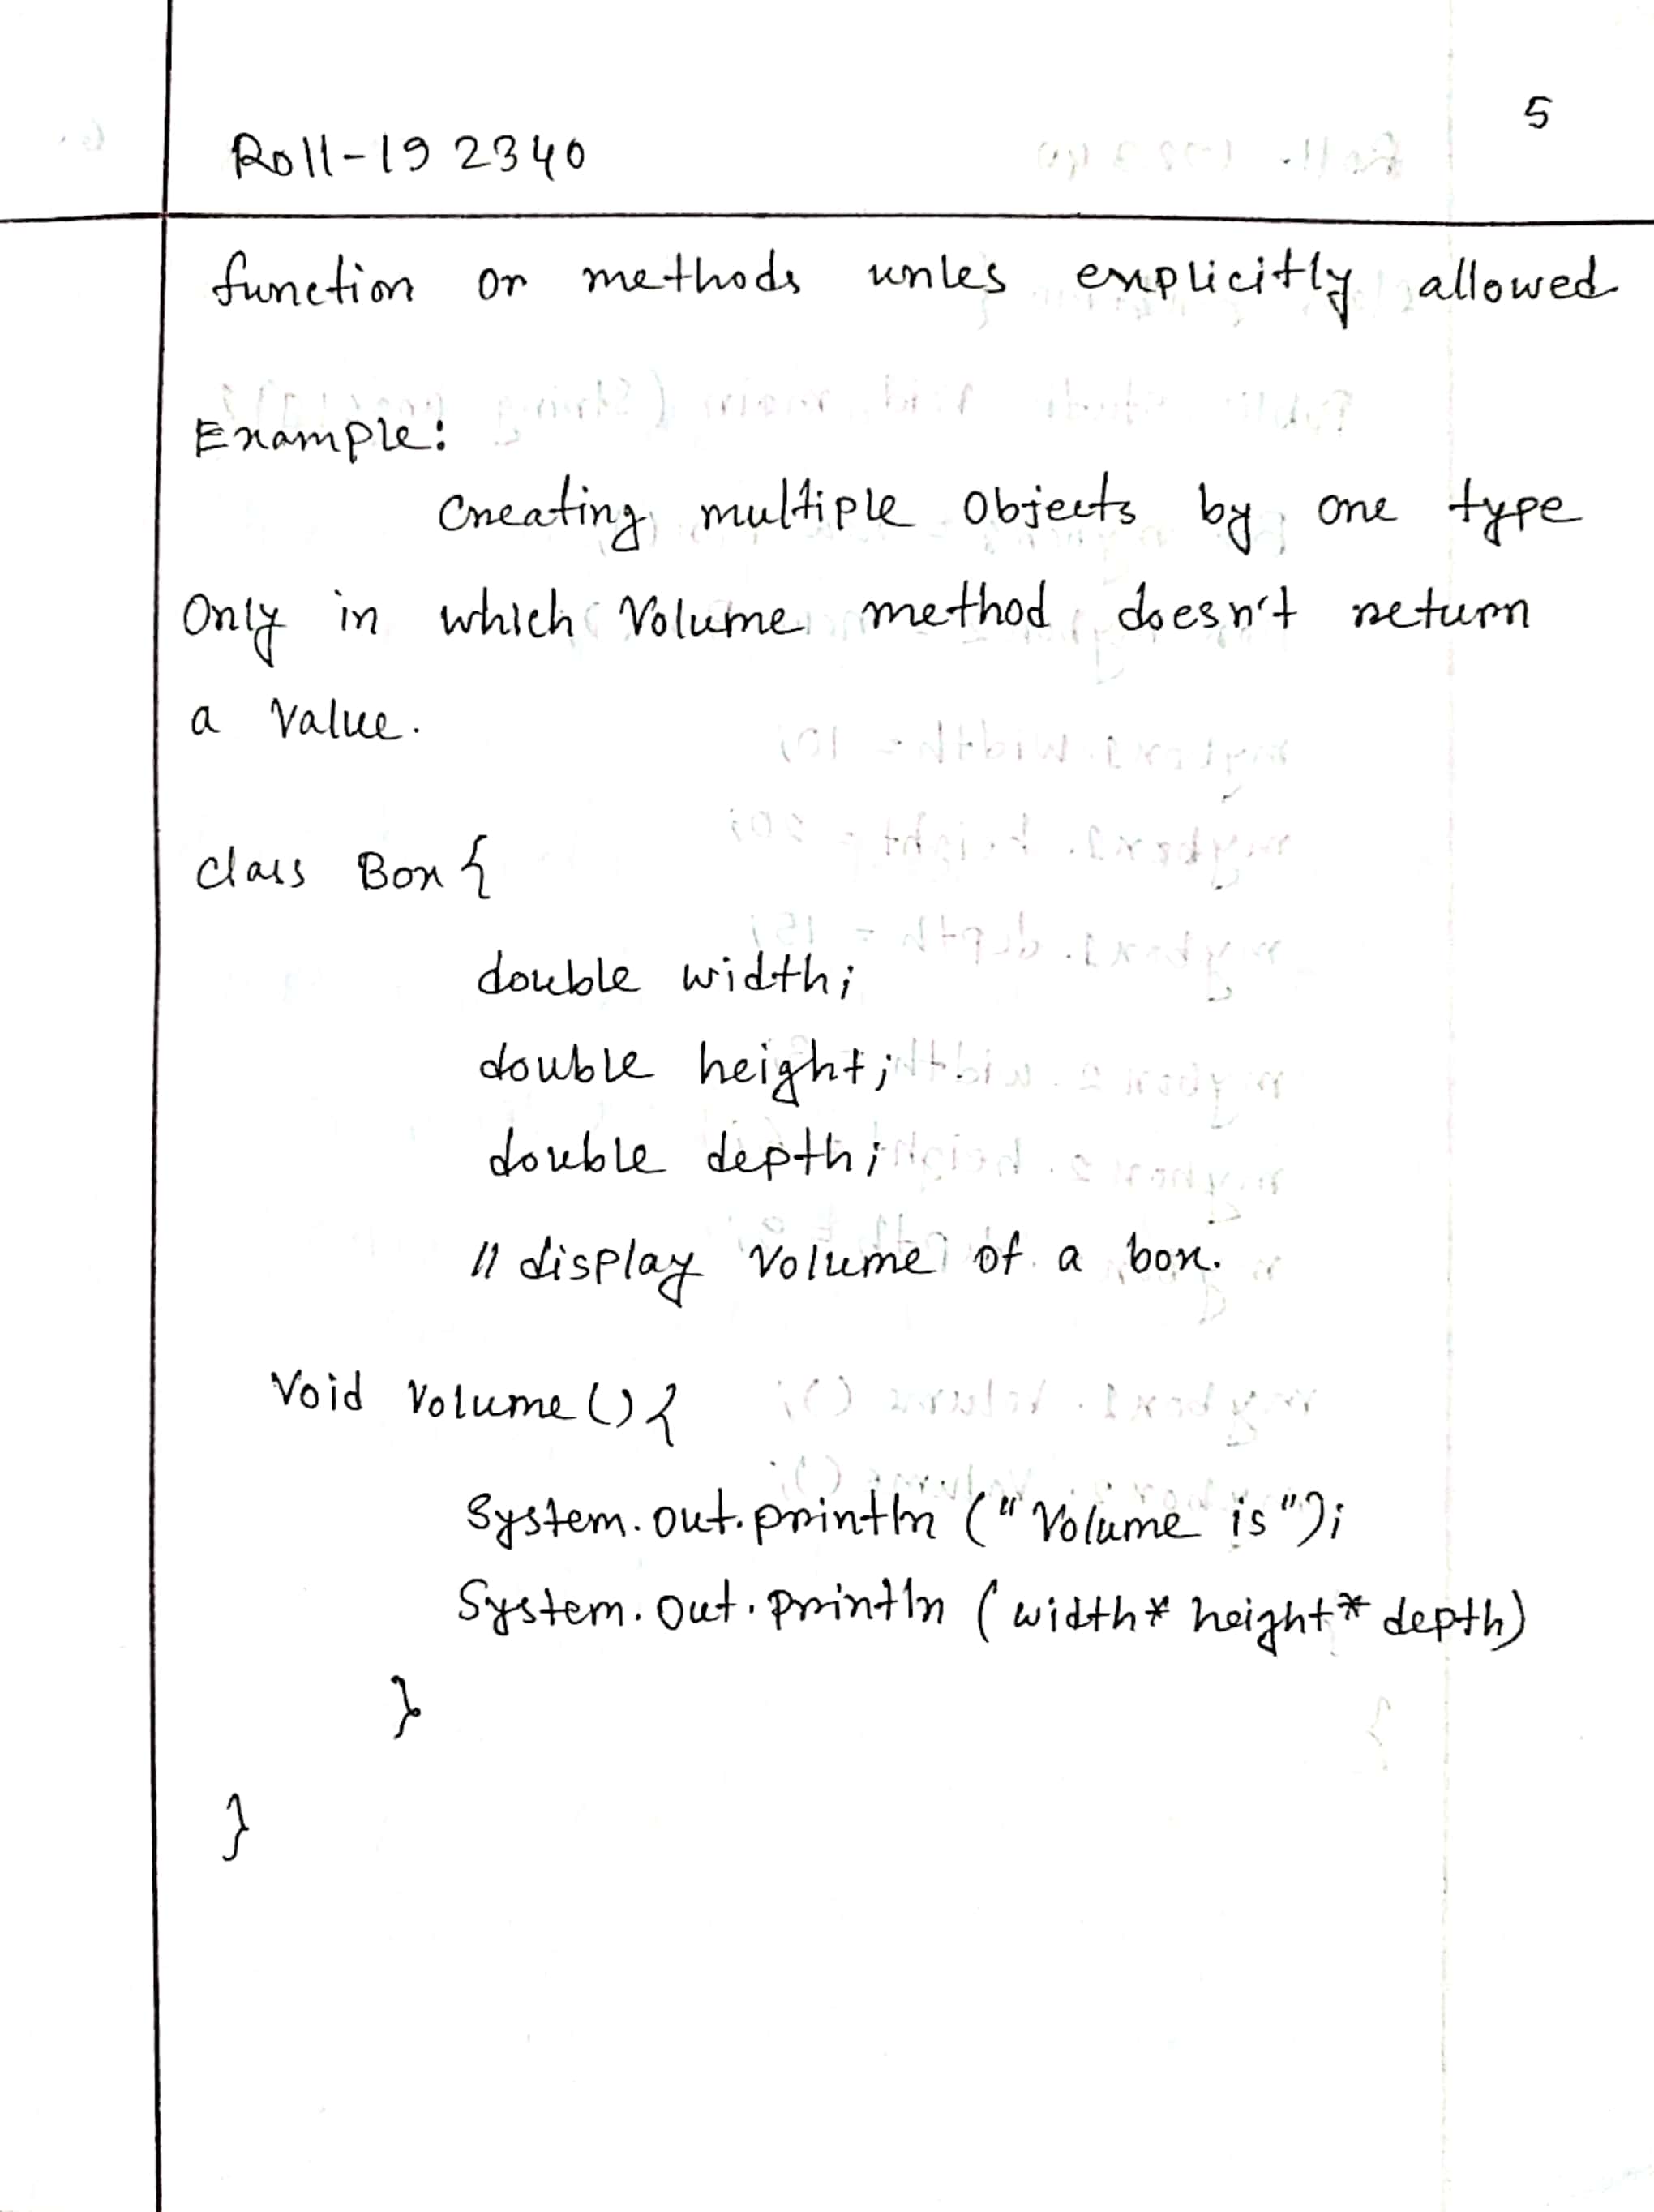 5
Roll-192340
function or methods unles explicitly allowed
Example:
Creating multiple Objects by one type
Only in which Volume method doesn't return
a Value.
class Box{
double width;
double height;
double depth;
// display Volume of a box.
Void Volume(){
System.out.println ("Volume is");
System.out.println (width* height* depth)
}
}